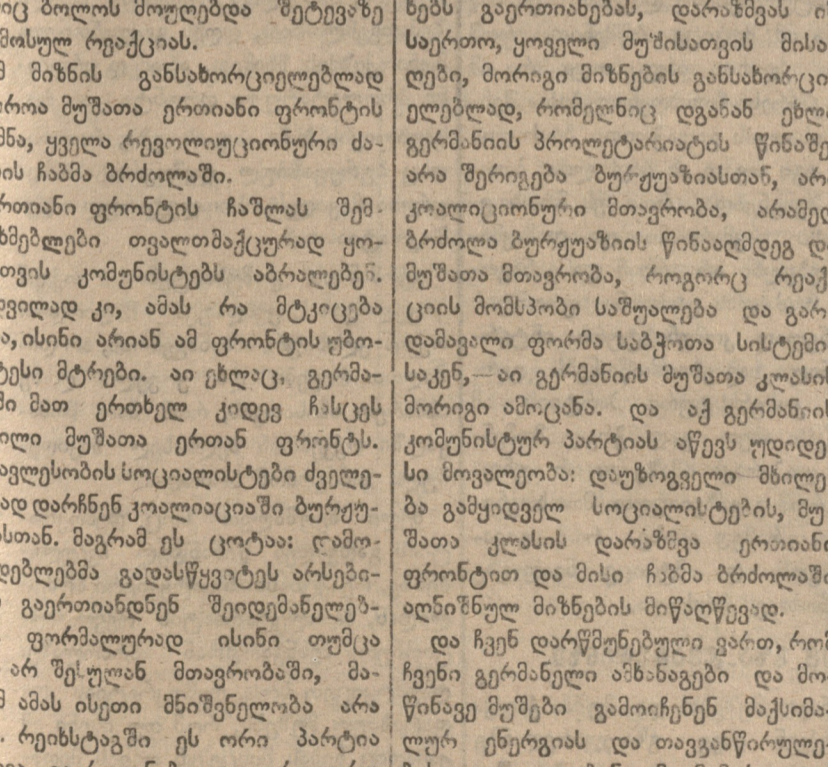 ბოლოს მოუღებდა შეტევაზე
მოსულ რეაქციას.
მიზნის განსახორციელებლად
მუშათა ერთიანი ფრონტის
ყველა რევოლიუციონური ძა-
ჩაბმა ბრძოლაში.
ფრონტის ჩაშლას შემ-
თვალთმაქცურად ყო-
კომუნისტებს აბრალებენ.
კი, ამას რა მტკიცება
ისინი არიან ამ ფრონტის უბო-
მტრები. აი ეხლაც, გერმა-
მათ ერთხელ კიდევ ჩასცეს
მუშათა ერთან ფრონტს.
სოციალისტები ძველე-
დარჩნენ კოალიაციაში ბურჟუ-
მაგრამ ეს ცოტაა: დამო-
გადასწყვიტეს არსები-
გაერთიანდნენ შეიდემანელებ-
ფორმალურად ისინი თუმცა
არ შესულან მთავრობაში, მა-
ამას ისეთი მნიშვნელობა არა
რეიხსტაგში ეს ორი პარტია
ნებს გაერთიანებას, დარაზმვას
საერთო, ყოველი მუშისათვის მისა
ღები, მორიგი მიზნების განსახორცი
ელებლად, რომელნიც დგანან ეხლ
გერმანიის პროლეტარიატის წინაშე
არა შერიგება ბურჟუაზიასთან, არ
კოალიციონური მთავრობა, არამედ
ბრძოლა ბურჟუაზიის წინააღმდეგ დ
მუშათა მთავრობა, როგორც რეაქ
ციის მომსპობი საშუალება და გარ
დამავალი ფორმა საბჭოთა სისტემი
საკენ,—აი გერმანიის მუშათა კლასის
მორიგი ამოცანა. და აქ გერმანიის
კომუნისტურ პარტიას აწევს უდიდე
სი მოვალეობა: დაუზოგველი მხილე
ბა გამყიდველ სოციალისტების, მუ
შათა კლასის დარაზმვა ერთიანი
ფრონტით და მისი ჩაბმა ბრძოლაში
აღნიშნულ მიზნების მიწაღწევად.
და ჩვენ დარწმუნებული ვართ, რომ
ჩვენი გერმანელი ამხანაგები და მო
წინავე მუშები გამოიჩენენ მაქსიმა-
ლურ ენერგიას და თავგანწირულე-